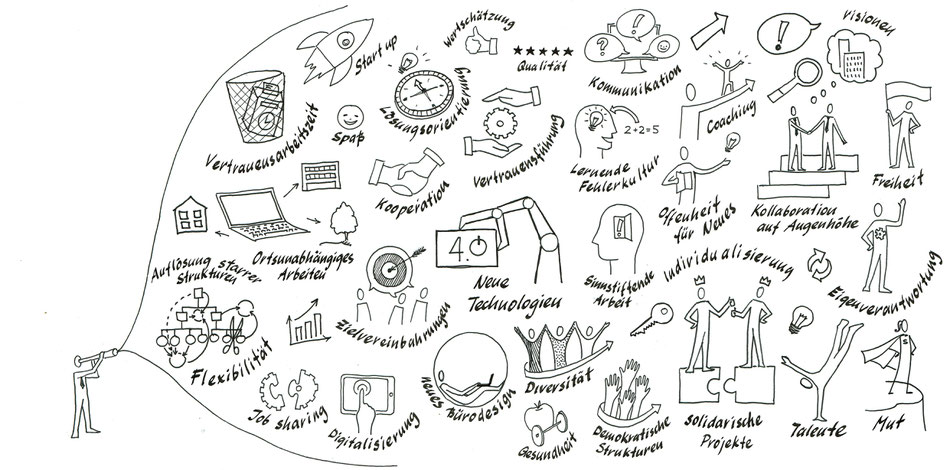 Start up
Wertschätzung
Qualität
Kommunikation
Visionen
Vertrauensarbeitszeit
Spaß
Lösungsorientierung
Vertrauensführung
2+2=5
Lernende
Fehlerkultur
Coaching
Kooperation
Offenheit
für Neues
Kollaboration
auf Augenhöhe
Freiheit
Auflösung starrer
Strukturen
Ortsunabhängiges
Arbeiten
4.0
Neue
Technologien
Sinnstiftende
Arbeit
Individualisierung
Eigenverantwortung
Flexibilität
Zielvereinbahrungen
Job sharing
Digitalisierung
neues
Bürodesign
Diversität
Gesundheit
Demokratische
Strukturen
Solidarische
Projekte
Talente
Mut